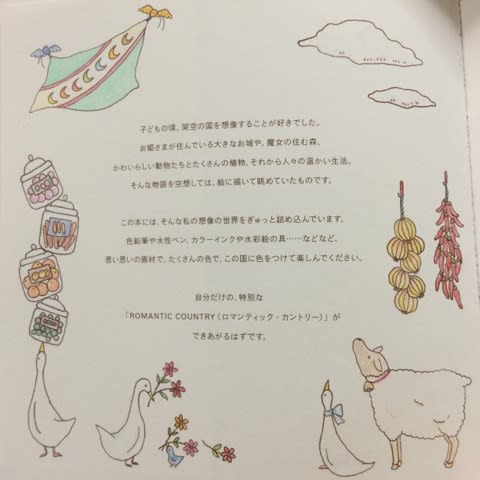 子どもの頃、架空の国を想像することが好きでした。
お姫さまが住んでいる大きなお城や、魔女の住む森、
かわいらしい動物たちとたくさんの植物、それから人々の温かい生活。
そんな物語を空想しては、絵に描いて眺めていたものです。
この本には、そんな私の想像の世界をぎゅっと詰め込んでいます。
色鉛筆や水性ペン、カラーインクや水彩絵の具……などなど、
思い思いの画材で、たくさんの色で、この国に色をつけて楽しんでください。
自分だけの、特別な
「ROMANTIC COUNTRY（ロマンティック・カントリー）」が
できあがるはずです。